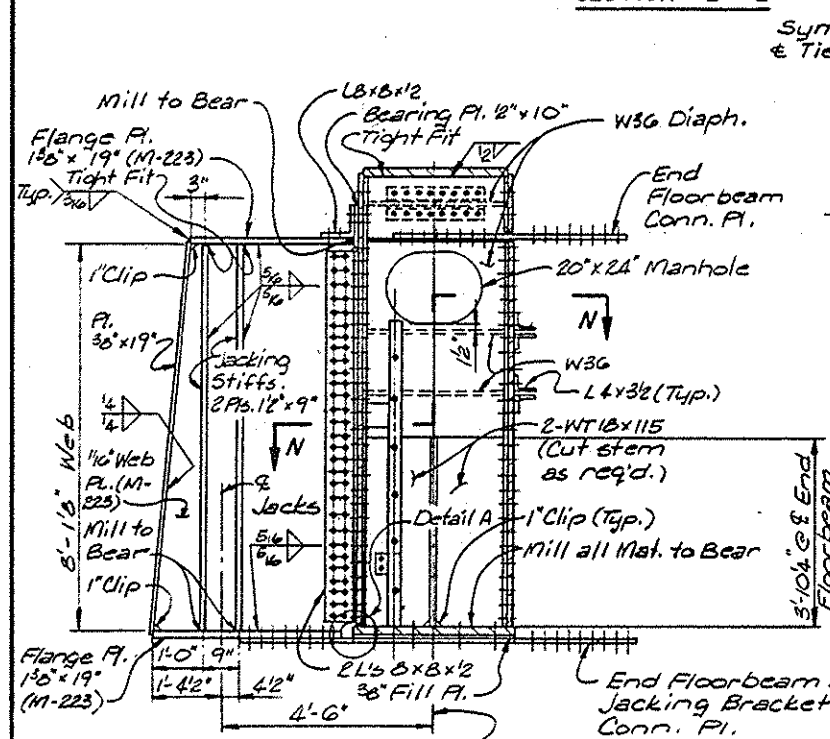 Sym
₵ Tie
Mill to Bear
L8x8x½
Bearing Pl. ½"x10"
Tight Fit
W36 Diaph.
Flange Pl.
1⅜" x 19" (M-223)
Tight Fit
3"
Typ.
3/16
½
End
Floorbeam
Conn. Pl.
1" Clip
5/16
5/16
20"x24" Manhole
Pl.
⅜"x19"
N
1½"
Jacking
Stiffs.
2 Pls. 1½"x9"
W36
L4x3½ (Typ.)
¼
¼
N
2-WT18x115
(Cut stem
as req'd.)
8'-1⅛" Web
11/16" Web
Pl. (M-
223)
₵
Jacks
Detail A
1" Clip (Typ.)
Mill to
Bear
5/16
5/16
Mill all Mat. to Bear
1" Clip
3'-10¼" @ ₵ End
Floorbeam
Flange Pl.
1⅜" x 19"
(M-223)
1'-0"
9"
1'-4½"
4½"
2 L's 8x8x½
⅜" Fill Pl.
4'-6"
End Floorbeam
Jacking Bracket
Conn. Pl.